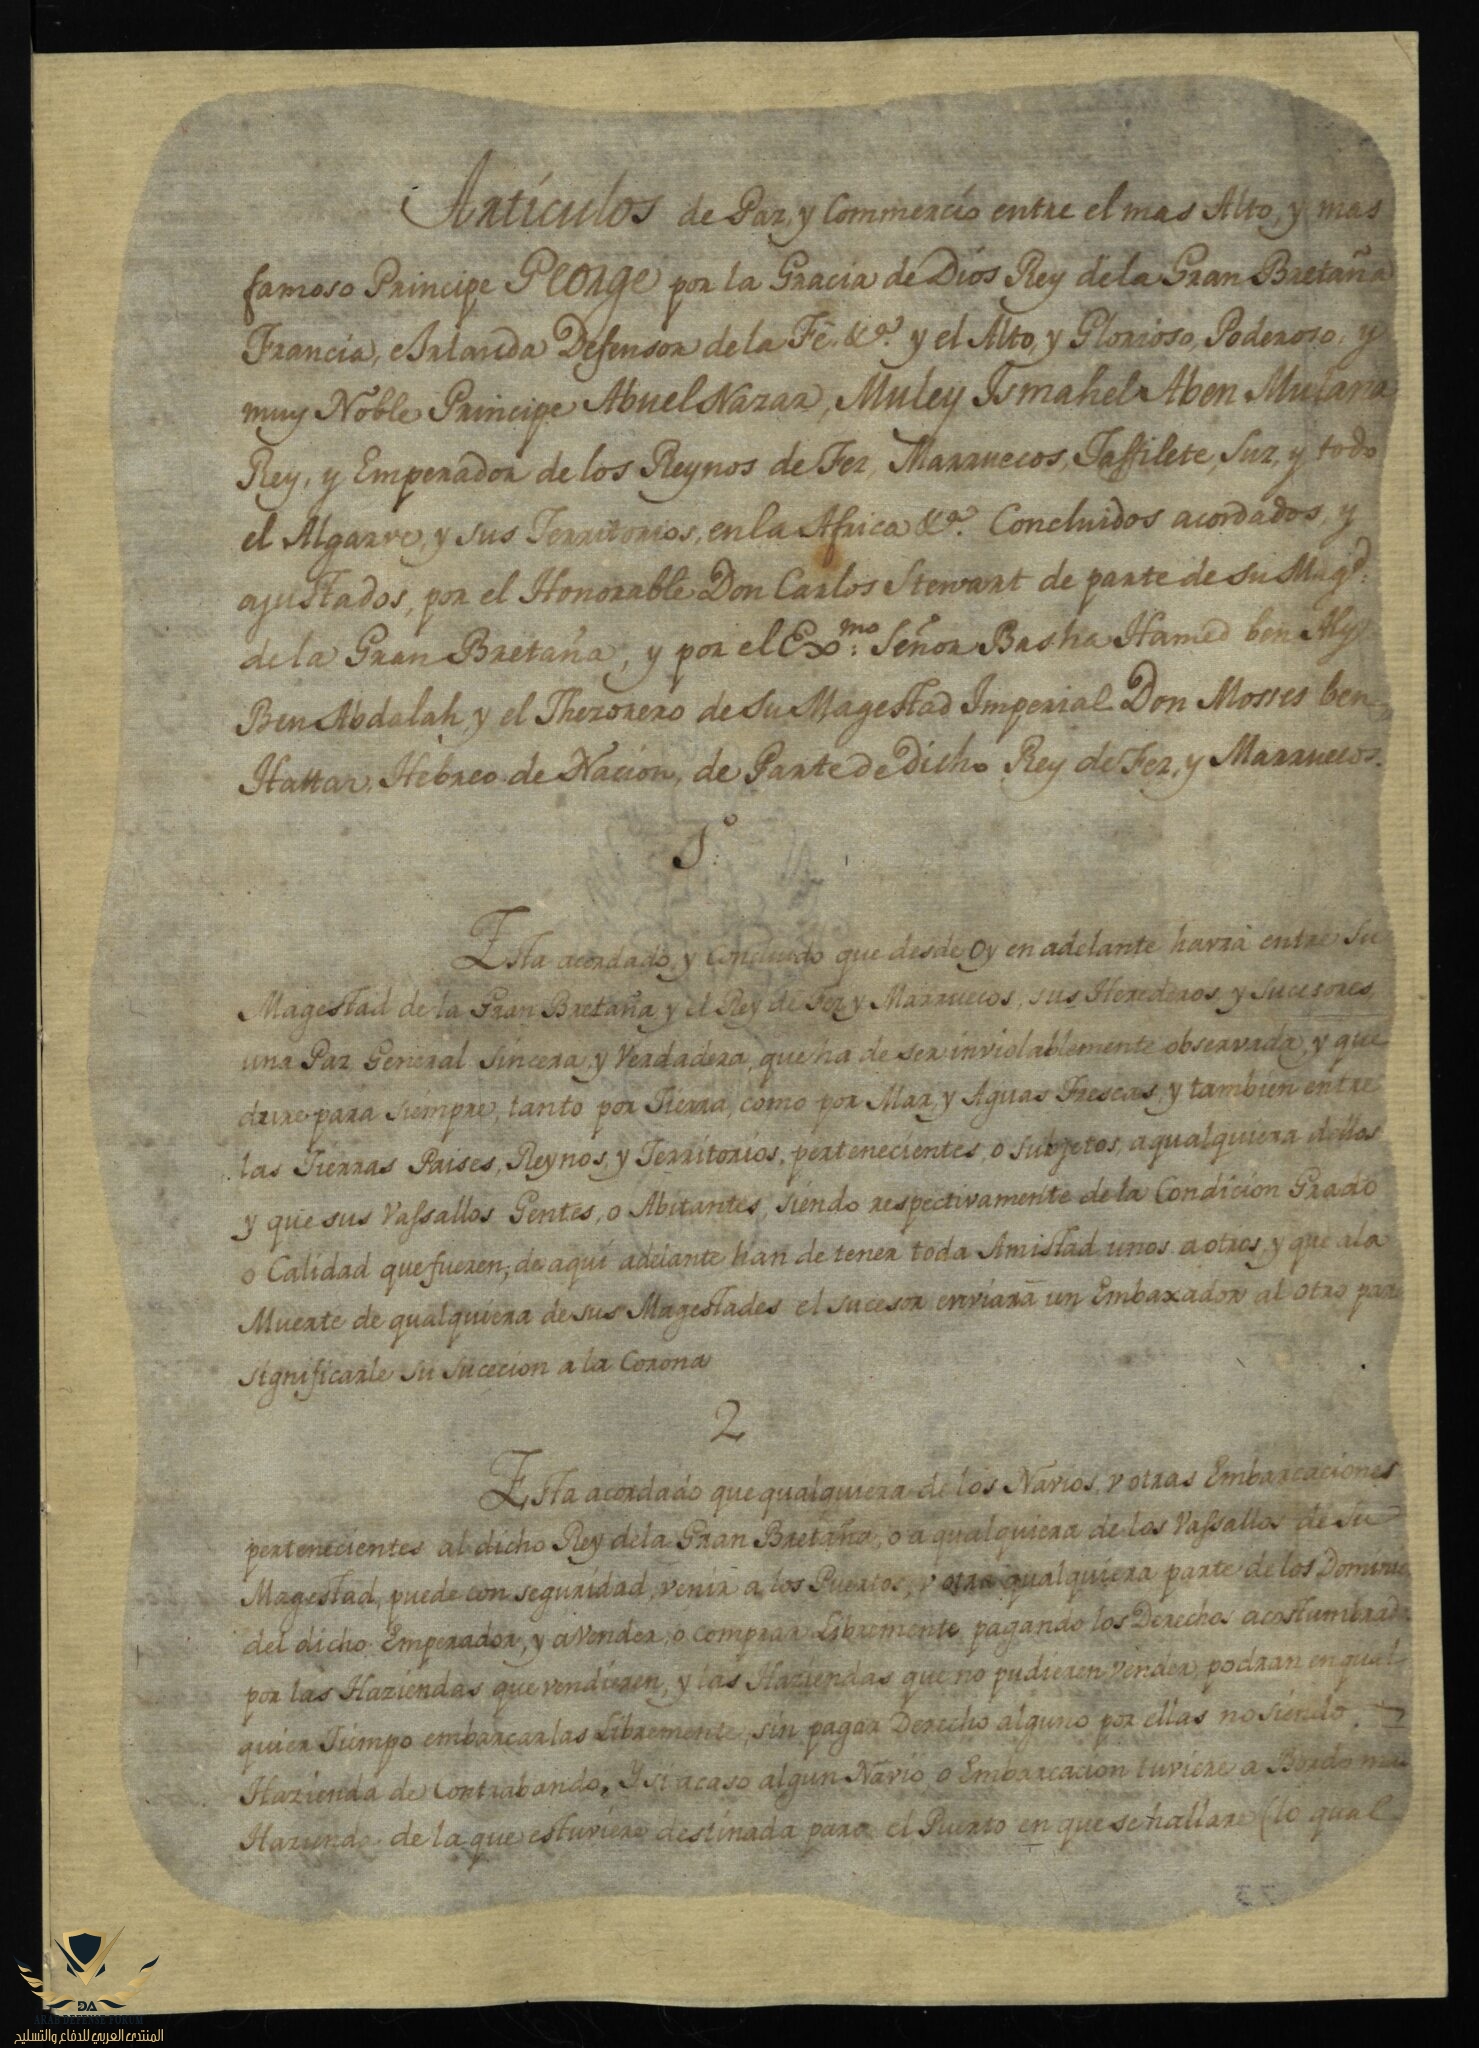 Artículos de Paz, y Commercio entre el mas Alto, y mas
famoso Principe George por la Gracia de Dios Rey de la Gran Bretaña
Francia, e Irlanda Defensor de la Fé. &ª. y el Alto, y Glorioso, Poderoso, y
muy Noble Principe Abuel Nazar, Muley Ismahel Aben Mulana
Rey, y Emperador de los Reynos de Fez, Marruecos, Taffilete, Suz, y todo
el Algarve, y sus Territorios, en la Africa &ª. Concluidos acordados, y
ajustados, por el Honorable Don Carlos Stewart de parte de su Magd:
de la Gran Bretaña, y por el Exmo: Señor Basha Hamed ben Aly
Ben Abdalah, y el Thezorero de su Magestad Imperial Don Mosses ben
Hattar, Hebreo de Nacion, de Parte de Dicho Rey de Fez, y Marruecos.
1º
Esta acordado, y Concluido que desde oy en adelante havrà entre Su
Magestad de la Gran Bretaña y el Rey de Fez y Marruecos, sus Herederos, y Sucesores,
una Paz General sincera, y Verdadera, que ha de ser inviolablemente observada, y que
dure para siempre, tanto por Tierra, como por Mar, y Aguas Frescas, y tambien entre
las Tierras Paises, Reynos, y Territorios, pertenecientes, o subjetos, a qualquiera dellos
y que sus Vassallos Gentes, o Abitantes, siendo respectivamente de la Condicion Grado
o Calidad que fueren, de aqui adelante han de tener toda Amistad unos a otros, y que a la
Muerte de qualquiera de sus Magestades el sucesor enviarà un Embaxador al otro para
significarle su sucecion a la Corona
2
Esta acordado que qualquiera de los Navios, v otras Embarcaciones
pertenecientes al dicho Rey de la Gran Bretaña, o a qualquiera de los Vassallos de Su
Magestad, puede con seguridad, venir a los Puertos, v otra qualquiera parte de los Domin
del dicho Emperador, y a Vender, o comprar Libremente pagando los Derechos acostumbrad
por las Haziendas que vendieren, y las Haziendas que no pudieren vender, podran en qual
quier Tiempo embarcarlas Libremente, sin pagar Derecho alguno por ellas no siendo
Hazienda de Contrabando, Y si acaso algun Navio o Embarcacion tuviere a Bordo mas
Hazienda de la que estuviere destinada para el Puerto en que se hallare (lo qual
73
DA
ARAB DEFENSE FORUM
المنتدى العربي للدفاع والتسليح